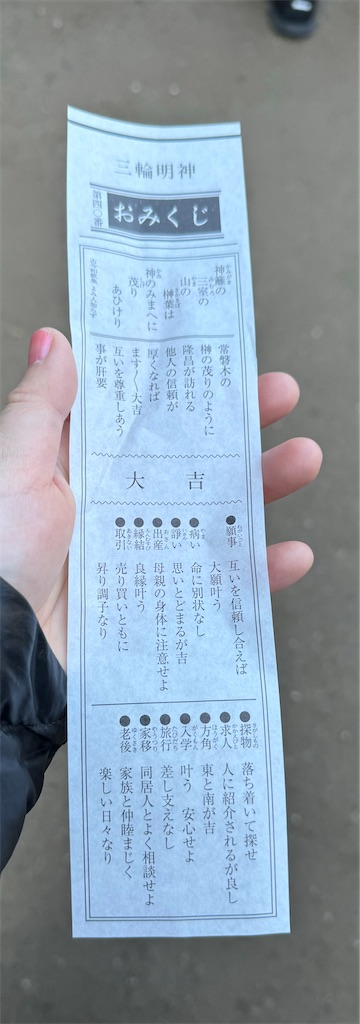 三輪明神
おみくじ
第四〇番
神籬の
三室の
山の
榊葉は
神のみまへに
茂り
あひけり
古今和歌集 よみ人知らず
常磐木の
榊の茂りのように
隆昌が訪れる
他人の信頼が
厚くなれば
ます〱大吉
互いを尊重しあう
事が肝要
大吉
●願事 互いを信頼し合えば
大願叶う
●病い 命に別状なし
●諍い 思いとどまるが吉
●出産 母親の身体に注意せよ
●縁結 良縁叶う
●取引 売り買いともに
昇り調子なり
●探物 落ち着いて探せ
●求人 人に紹介されるが良し
●方角 東と南が吉
●入学 叶う 安心せよ
●旅行 差し支えなし
●家移 同居人とよく相談せよ
●老後 家族と仲睦まじく
楽しい日々なり